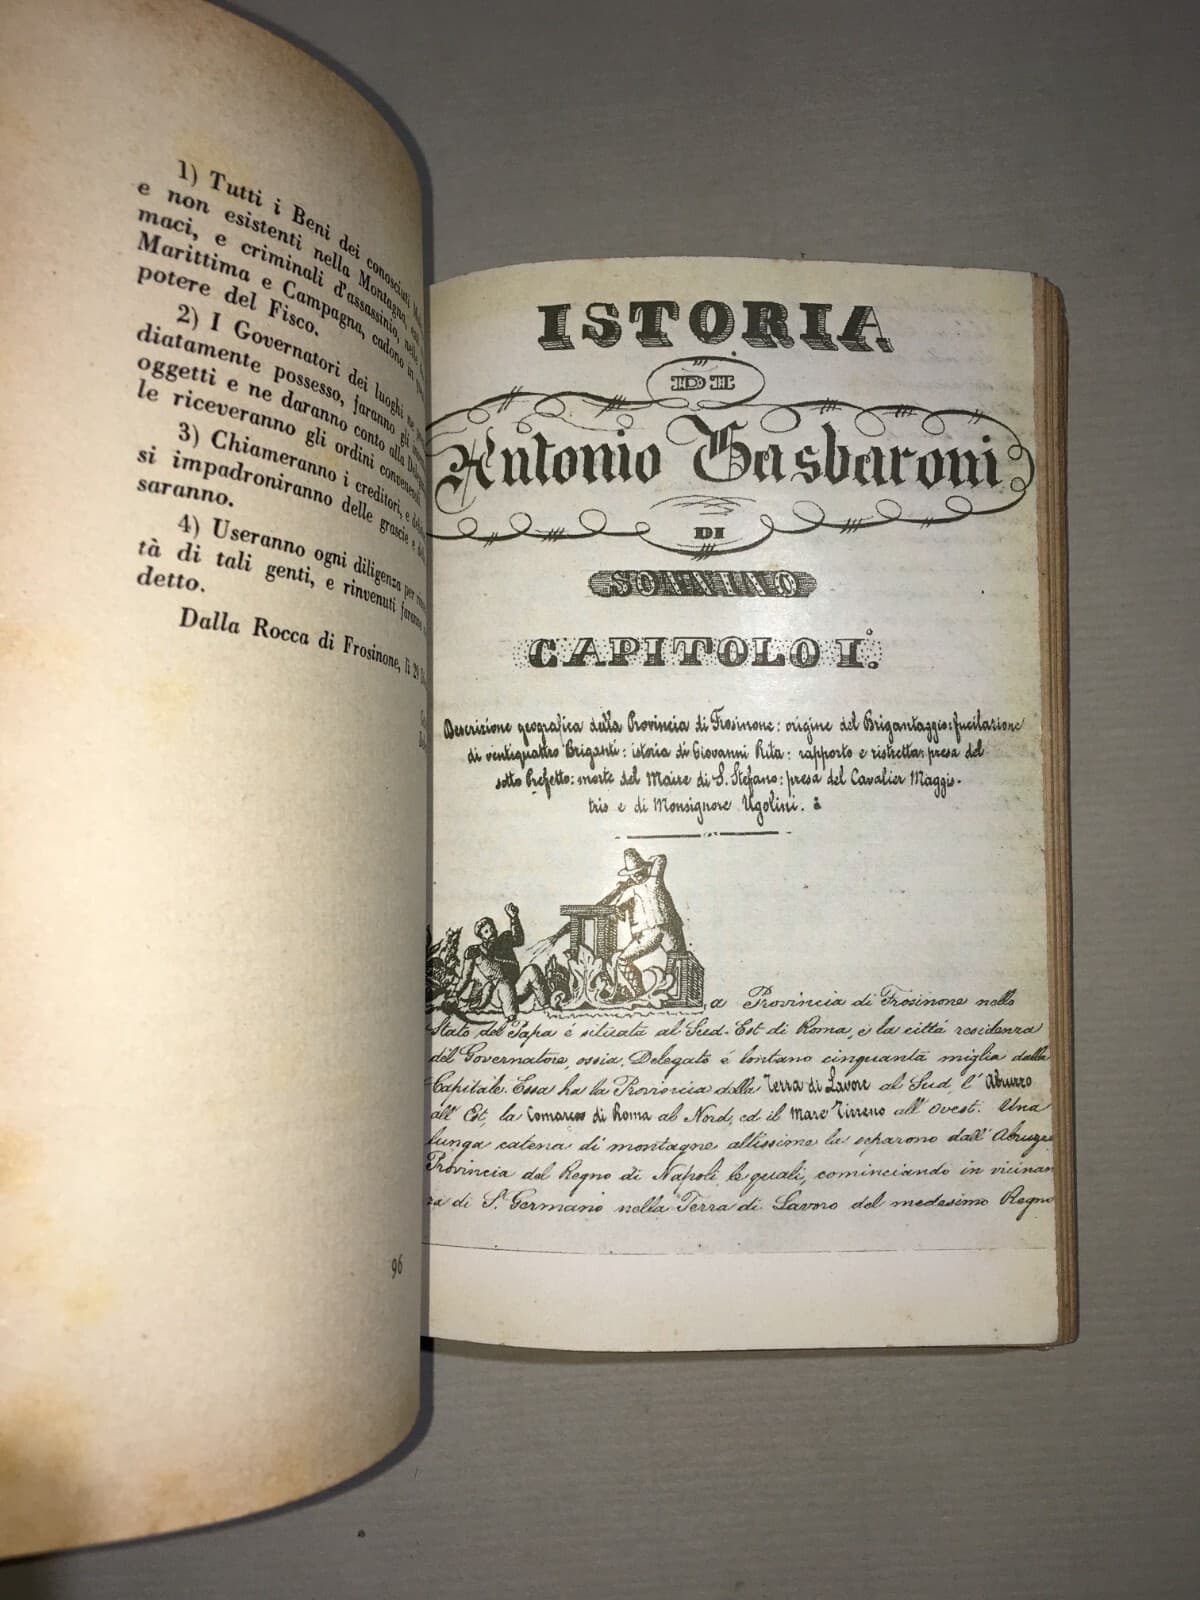 1) Tutti i Beni dei conosciuti
e non esistenti nella Montagna,
maci, e criminali d'assassinio, nelle
Marittima e Campagna, cadono in
potere del Fisco.
2) I Governatori dei luoghi ne
diatamente possesso, faranno gli
oggetti e ne daranno conto alla
le riceveranno gli ordini convenevoli.
3) Chiameranno i creditori, e
si impadroniranno delle grascie e
saranno.
4) Useranno ogni diligenza per
tà di tali genti, e rinvenuti faranno
detto.
Dalla Rocca di Frosinone, li 29
96
ISTORIA
DI
Antonio Gasbaroni
DI
SONNINO
CAPITOLO I.°
Descrizione geografica della Provincia di Frosinone: origine del Brigantaggio: fucilazione
di ventiquattro Briganti: istoria di Giovanni Rita: rapporto e ristretta: presa del
sotto Prefetto: morte del Maire di S. Stefano: presa del Cavalier Maggis-
tris e di Monsignore Ugolini.
a Provincia di Frosinone nello
Stato del Papa è situata al Sud-Est di Roma, e la città residenza
del Governatore, ossia Delegato è lontano cinquanta miglia dalla
Capitale. Essa ha la Provincia della Terra di Lavoro al Sud, l'Abruzzo
all'Est, la Comarca di Roma al Nord, ed il Mare Tirreno all'Ovest. Una
lunga catena di montagne altissime la separono dall'
Provincia del Regno di Napoli le quali, cominciando in vicinan
za di S. Germano nella Terra di Lavoro del medesimo Regno